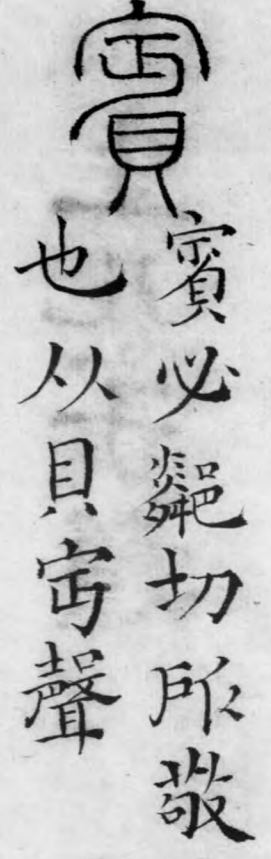 賓
賓必鄰切所敬
也从貝𡧍聲